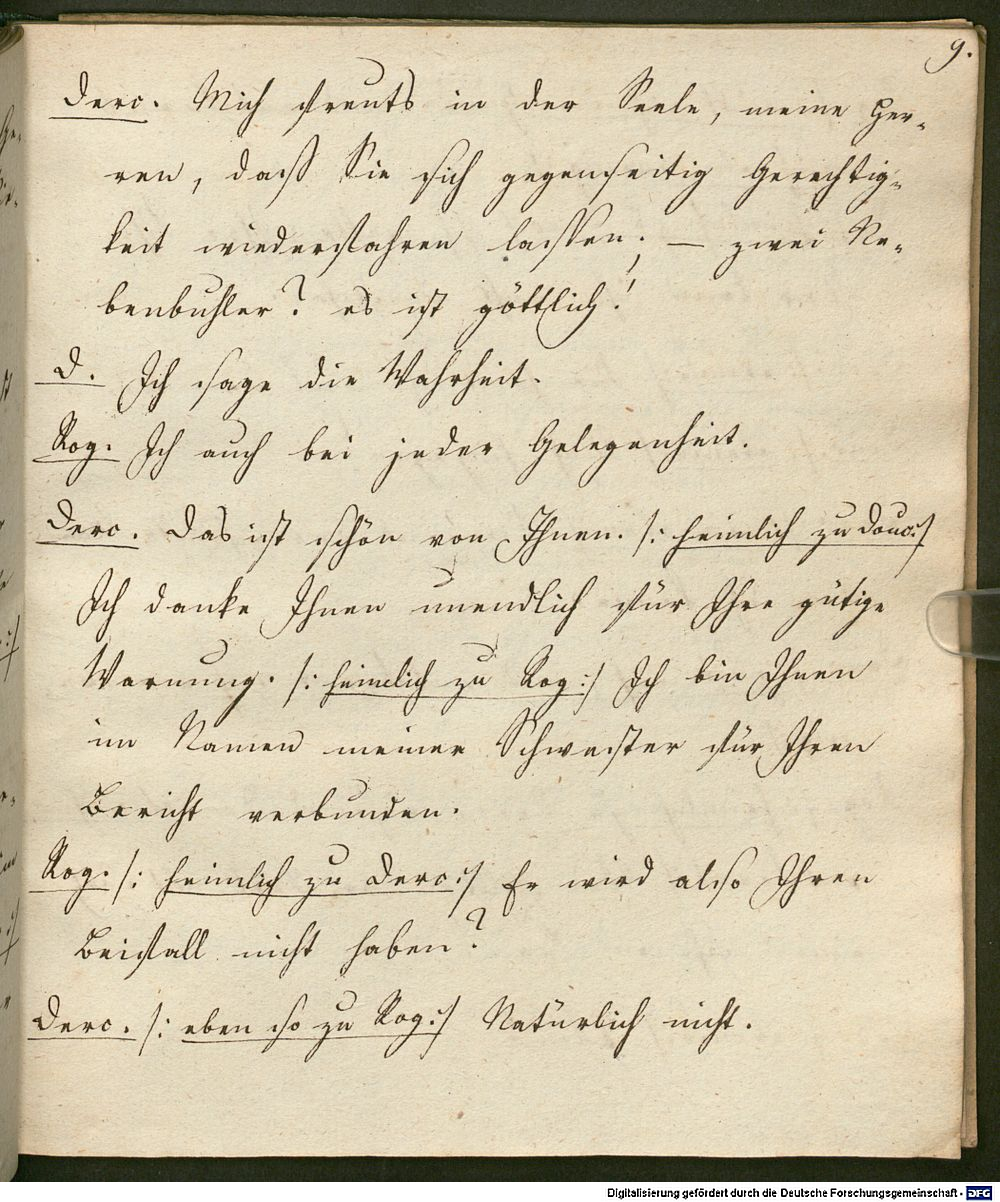 9.
Derc. Mich freuts in der Seele, meine Her-
ren, daß Sie sich gegenseitig Gerechtig-
keit wiederfahren lassen; – zwei Ne-
benbuhler? es ist göttlich!
D. Ich sage die Wahrheit.
Rog. Ich auch bei jeder Gelegenheit.
Derc. Das ist schön von Ihnen. /: heimlich zu Douc:/
Ich danke Ihnen unendlich für Ihre gütige
Warnung. /: heimlich zu Rog:/ Ich bin Ihnen
im Namen meiner Schwester für Ihren
Bericht verbunden.
Rog. /: heimlich zu Derc:/ Er wird also Ihren
Beifall nicht haben?
Derc. /: eben so zu Rog:/ Natürlich nicht.
Digitalisierung gefördert durch die Deutsche Forschungsgemeinschaft - DFG